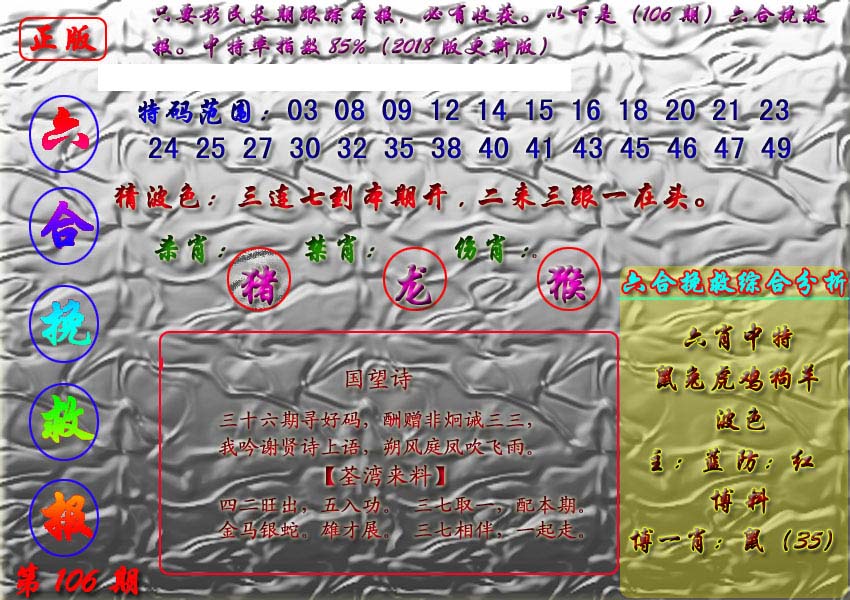 正版
只要彩民长期跟踪本报，必有收获。以下是（106期）六合挽救
报。中特率指数85%（2018版更新版）
六合挽救报
第106期
特码范围：03 08 09 12 14 15 16 18 20 21 23
24 25 27 30 32 35 38 40 41 43 45 46 47 49
猜波色：三连七到本期开，二来三跟一在头。
杀肖：猪 禁肖：龙 伤肖：猴
国望诗
三十六期寻好码，酬赠非炯诚三三，
我吟谢贤诗上语，朔风庭凤吹飞雨。
【荃湾来料】
四二旺出，五入功。 三七取一，配本期。
金马银蛇。雄才展。 三七相伴，一起走。
六合挽救综合分析
六肖中特
鼠兔虎鸡狗羊
波色
主：蓝防：红
博料
博一肖：鼠（35）